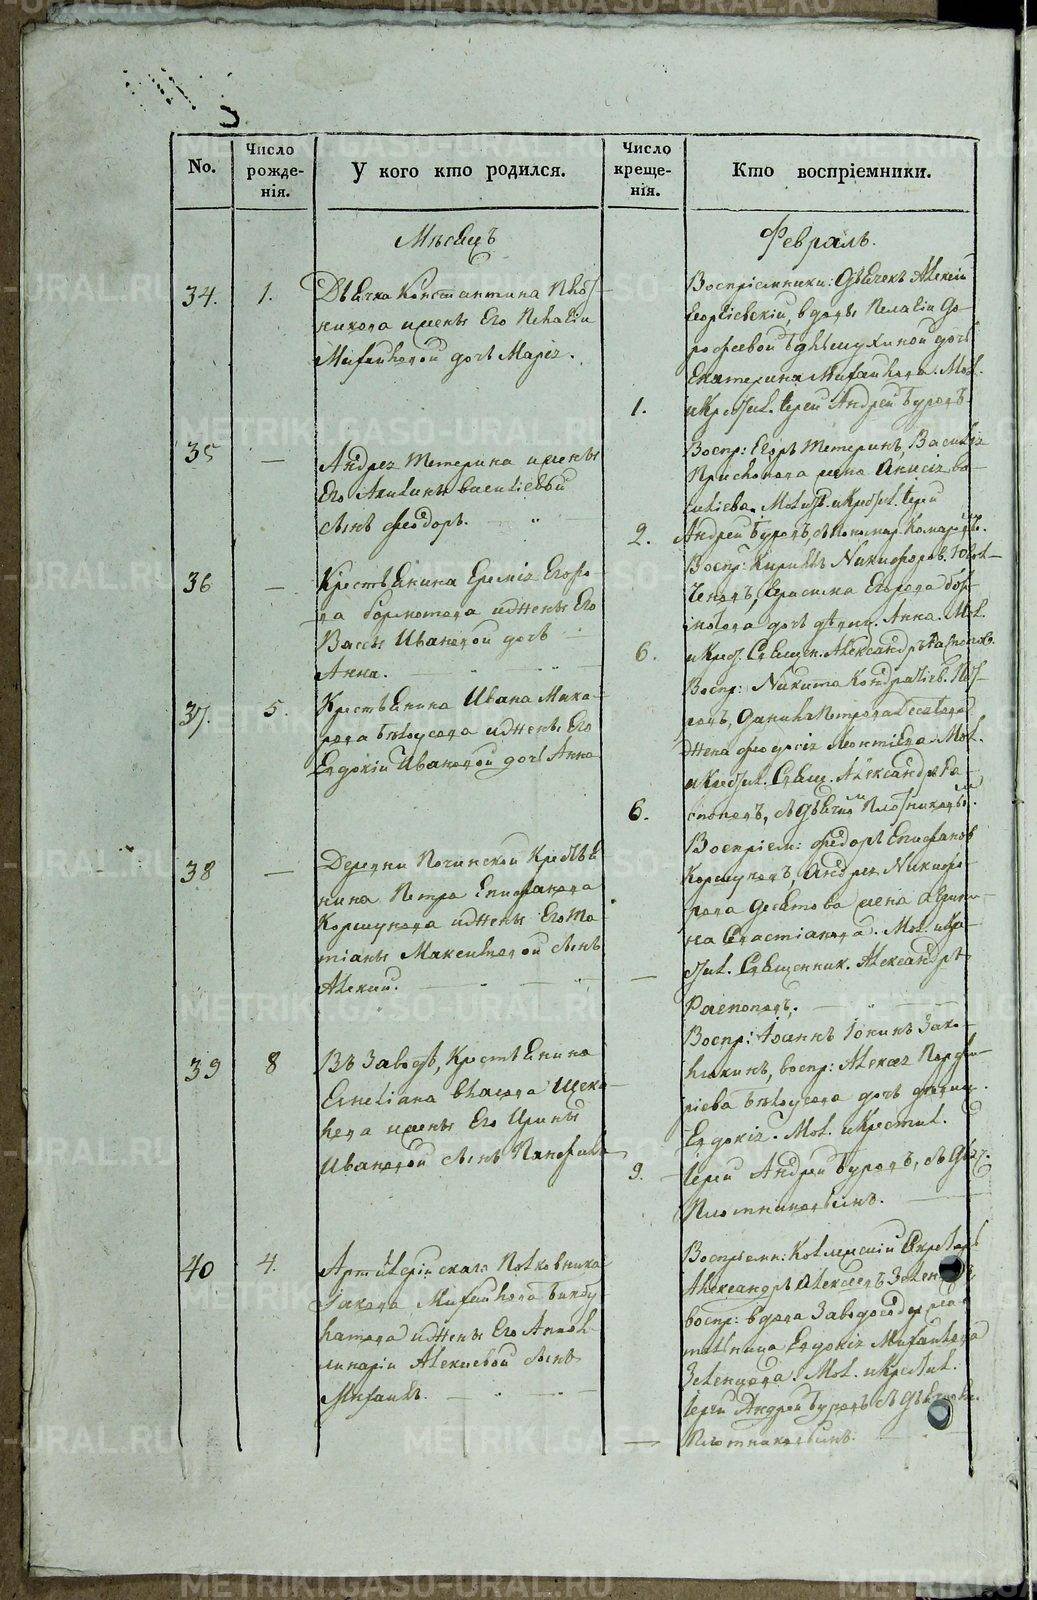 No.
Число рожде-
нія.
У кого кто родился.
Число креще-
нія.
Кто воспріемники.
Мѣсяцъ
Февраль.
34. 1.
Дьячка Константина
никова и жены его Пелагіи
Михайловой дочь Марія.
Воспріемники: Дьячекъ Алексій
Георгіевскій, вдовы Пелагіи До-
рофеевой дочь
Екатерина Михайлова. Мол.
1. и крестил. Іерей Андрей Буровъ
35 —
Андрея Тетерина и жены
его Акилины Васильевой
сынъ Феодоръ.
Воспр: Егоръ Тетеринъ, Василія
жена Анисія Ва-
сильева. Молит. и крестил. Іерей
2. Андрей Буровъ, с пономар. Комаровымъ.
36 —
Крестьянина Еремія Егоро-
ва Бармотова и жены его
Вассы Ивановой дочь
Анна.
Воспр: Кириллъ Никифоров.
Герасима Егорова Бар-
мотова дочь девиц. Анна. Мол.
6. и крест. Священ. Александръ Распопов.
37. 5.
Крестьянина Ивана Мака-
рова Бѣлоусова и жены его
Евдокіи Ивановой дочь Анна
Воспр: Никита Кондратьев.
Данила Петрова Десятова
жена Феодосія Леонтіева. Мол.
и крестил. Свящ. Александръ Ра-
6. споповъ, с дьячкомъ Плотниковымъ.
38 —
Деревни Починской Крестья
нина Петра Епифанова
Коршунова и жены его Та-
тіаны Максимовой сынъ
Алексій.
Воспріем: Федоръ Епифанов
Коршуновъ, Андрея Никифо-
рова Десятова жена Агрипи-
на Севастіанова. Мол. и кре-
— стил. Священник. Александръ
Распоповъ.
39 8
Въ Заводѣ, Крестьянина
Емеліана Власова Щека-
лева и жены его Ирины
Ивановой сынъ Панфилъ
Воспр: Іоаннъ Іонинъ Зако-
люкинъ, воспр: Алексѣя Порфи-
ріева Бѣлоусова дочь девица
Евдокія. Мол. и крестил.
9. Іерей Андрей Буровъ, с дьяч.
Плотниковымъ.
40 4.
Артиллерійскаго Полковника
Іакова Михайлова
и жены его Аппол-
линаріи Алексіевой сынъ
Михаилъ.
Воспріемн: Коллежскій Секретарь
Александръ Алексеевъ Зеленцов
воспр: вдова Заводосодержа-
тельница Евдокія Михайлова
Зеленцова. Мол. и крестил.
Іерей Андрей Буровъ с дьячком
— Плотниковымъ.